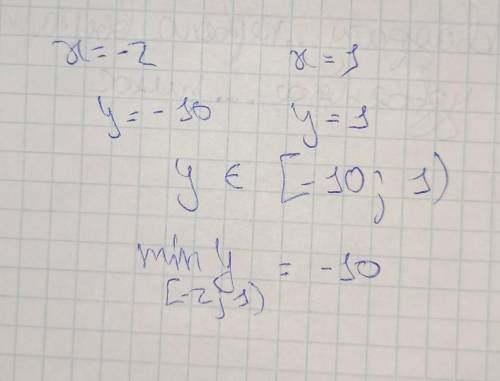 x = -2 x = 1
y = -10 y = 1
y ∈ [-10; 1)
min y = -10
[-2; 1)